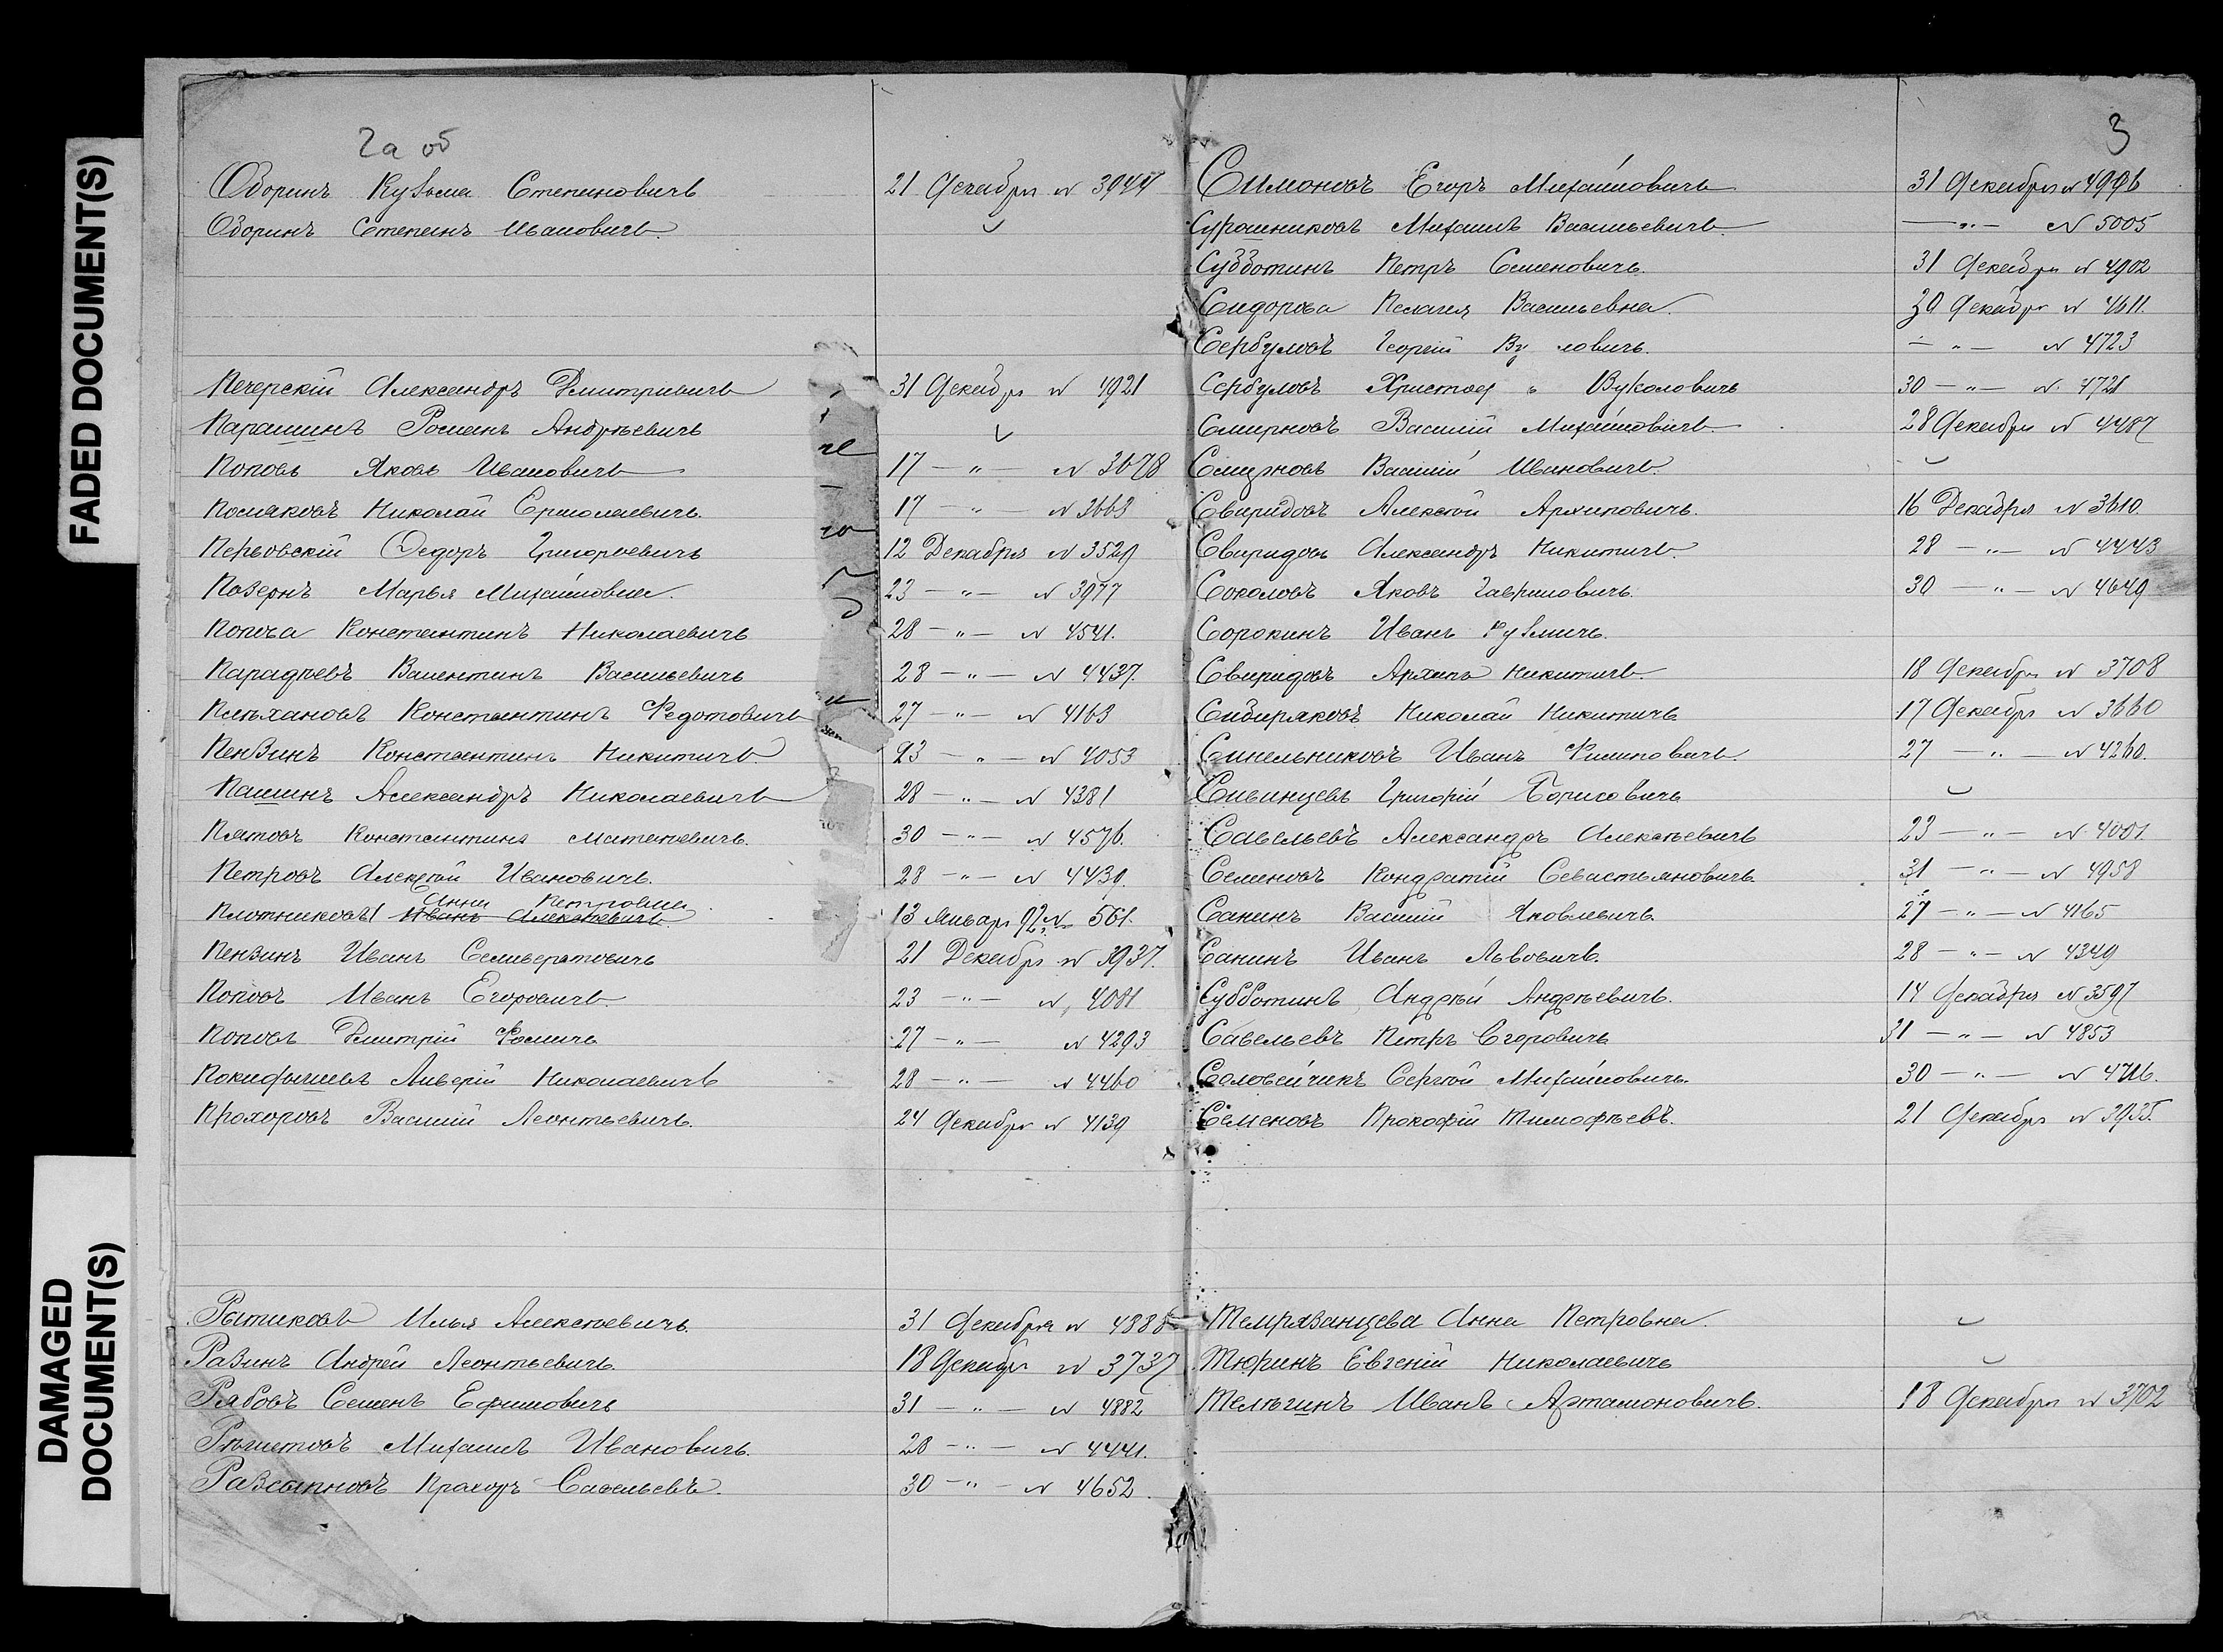 FADED DOCUMENT(S)
DAMAGED DOCUMENT(S)
2а об
Озоринъ Кузьма Степановичъ 21 Декабря № 3944
Озоринъ Степанъ Ивановичъ.
Печерскій Александръ Дмитріевичъ 31 Декабря № 4921
Парашинъ Романъ Андреевичъ
Поповъ Яковъ Ивановичъ 17 — " — № 3678
Посляковъ Николай Ермолаевичъ. 17 — " — № 3663
Перьовскій Федоръ Григорьевичъ 12 Декабря № 3529
Позернъ Марья Михайловна. 23 — " — № 3977
Попова Константинъ Николаевичъ 28 — " — № 4541.
Парадѣевъ Валентинъ Васильевичъ 28 — " — № 4437.
Плѣхановъ Константинъ Федотовичъ 27 — " — № 4163
Пензинъ Константинъ Никитичъ 23 — " — № 4053
Пашинъ Александръ Николаевичъ 28 — " — № 4381
Пятовъ Константинъ Матвѣевичъ. 30 — " — № 4576.
Петровъ Алексѣй Ивановичъ. 28 — " — № 4439.
Анна Петровна
Плотниковъ Иванъ Алексѣевичъ. 13 Января 92 № 561.
Пензинъ Иванъ Селиверстовичъ 21 Декабря № 3937.
Поповъ Иванъ Егоровичъ 23 — " — № 4081
Поповъ Дмитрій Фомичъ 27 — " — № 4293
Покидышевъ Ливерій Николаевичъ 28 — " — № 4460
Прохоровъ Василій Леонтьевичъ. 24 Декабря № 4139
Рытиковъ Илья Алексѣевичъ. 31 Декабря № 4888
Разинъ Андрей Леонтьевичъ. 18 Декабря № 3737
Рябовъ Семенъ Ефимовичъ 31 — " — № 4882
Рѣшетовъ Михаилъ Ивановичъ. 28 — " — № 4441.
Разсыпновъ Прохоръ Савельевъ. 30 — " — № 4652.
3
Симоновъ Егоръ Михайловичъ 31 Декабря № 4996
Сурошниковъ Михаилъ Васильевичъ — " — № 5005
Субботинъ Петръ Семеновичъ. 31 Декабря № 4902
Сидорова Пелагея Васильевна. 30 Декабря № 4611.
Сербуловъ Георгій Ву ловичъ. — " — № 4723
Сербуловъ Христоф " Вуколовичъ 30 — " — № 4721
Смирновъ Василій Михайловичъ. 28 Декабря № 4487
Смирновъ Василій Ивановичъ.
Свиридовъ Алексѣй Архиповичъ. 16 Декабря № 3610.
Свиридовъ Александръ Никитичъ. 28 — " — № 4443
Соколовъ Яковъ Гавриловичъ. 30 — " — № 4649
Сорокинъ Иванъ Кузмичъ.
Свиридовъ Архипъ Никитичъ. 18 Декабря № 3708
Сибиряковъ Николай Никитичъ 17 Декабря № 3660
Синельниковъ Иванъ Филиповичъ. 27 — " — № 4260.
Сивинцевъ Григорій Борисовичъ
Савельевъ Александръ Алексѣевичъ 23 — " — № 4001.
Семеновъ Кондратій Севастьяновичъ. 31 — " — № 4958
Санинъ Василій Яковлевичъ. 27 — " — № 4165
Санинъ Иванъ Львовичъ. 28 — " — № 4349
Субботинъ Андрѣй Андрѣевичъ. 14 Декабря № 3597
Савельевъ Петръ Егоровичъ 31 — " — № 4853
Соловейчикъ Сергѣй Михайловичъ. 30 — " — № 4716.
Семеновъ Прокофій Тимофѣевъ. 21 Декабря № 3935.
Темрязанцева Анна Петровна.
Тюринъ Евгеній Николаевичъ
Телѣгинъ Иванъ Артамоновичъ. 18 Декабря № 3702